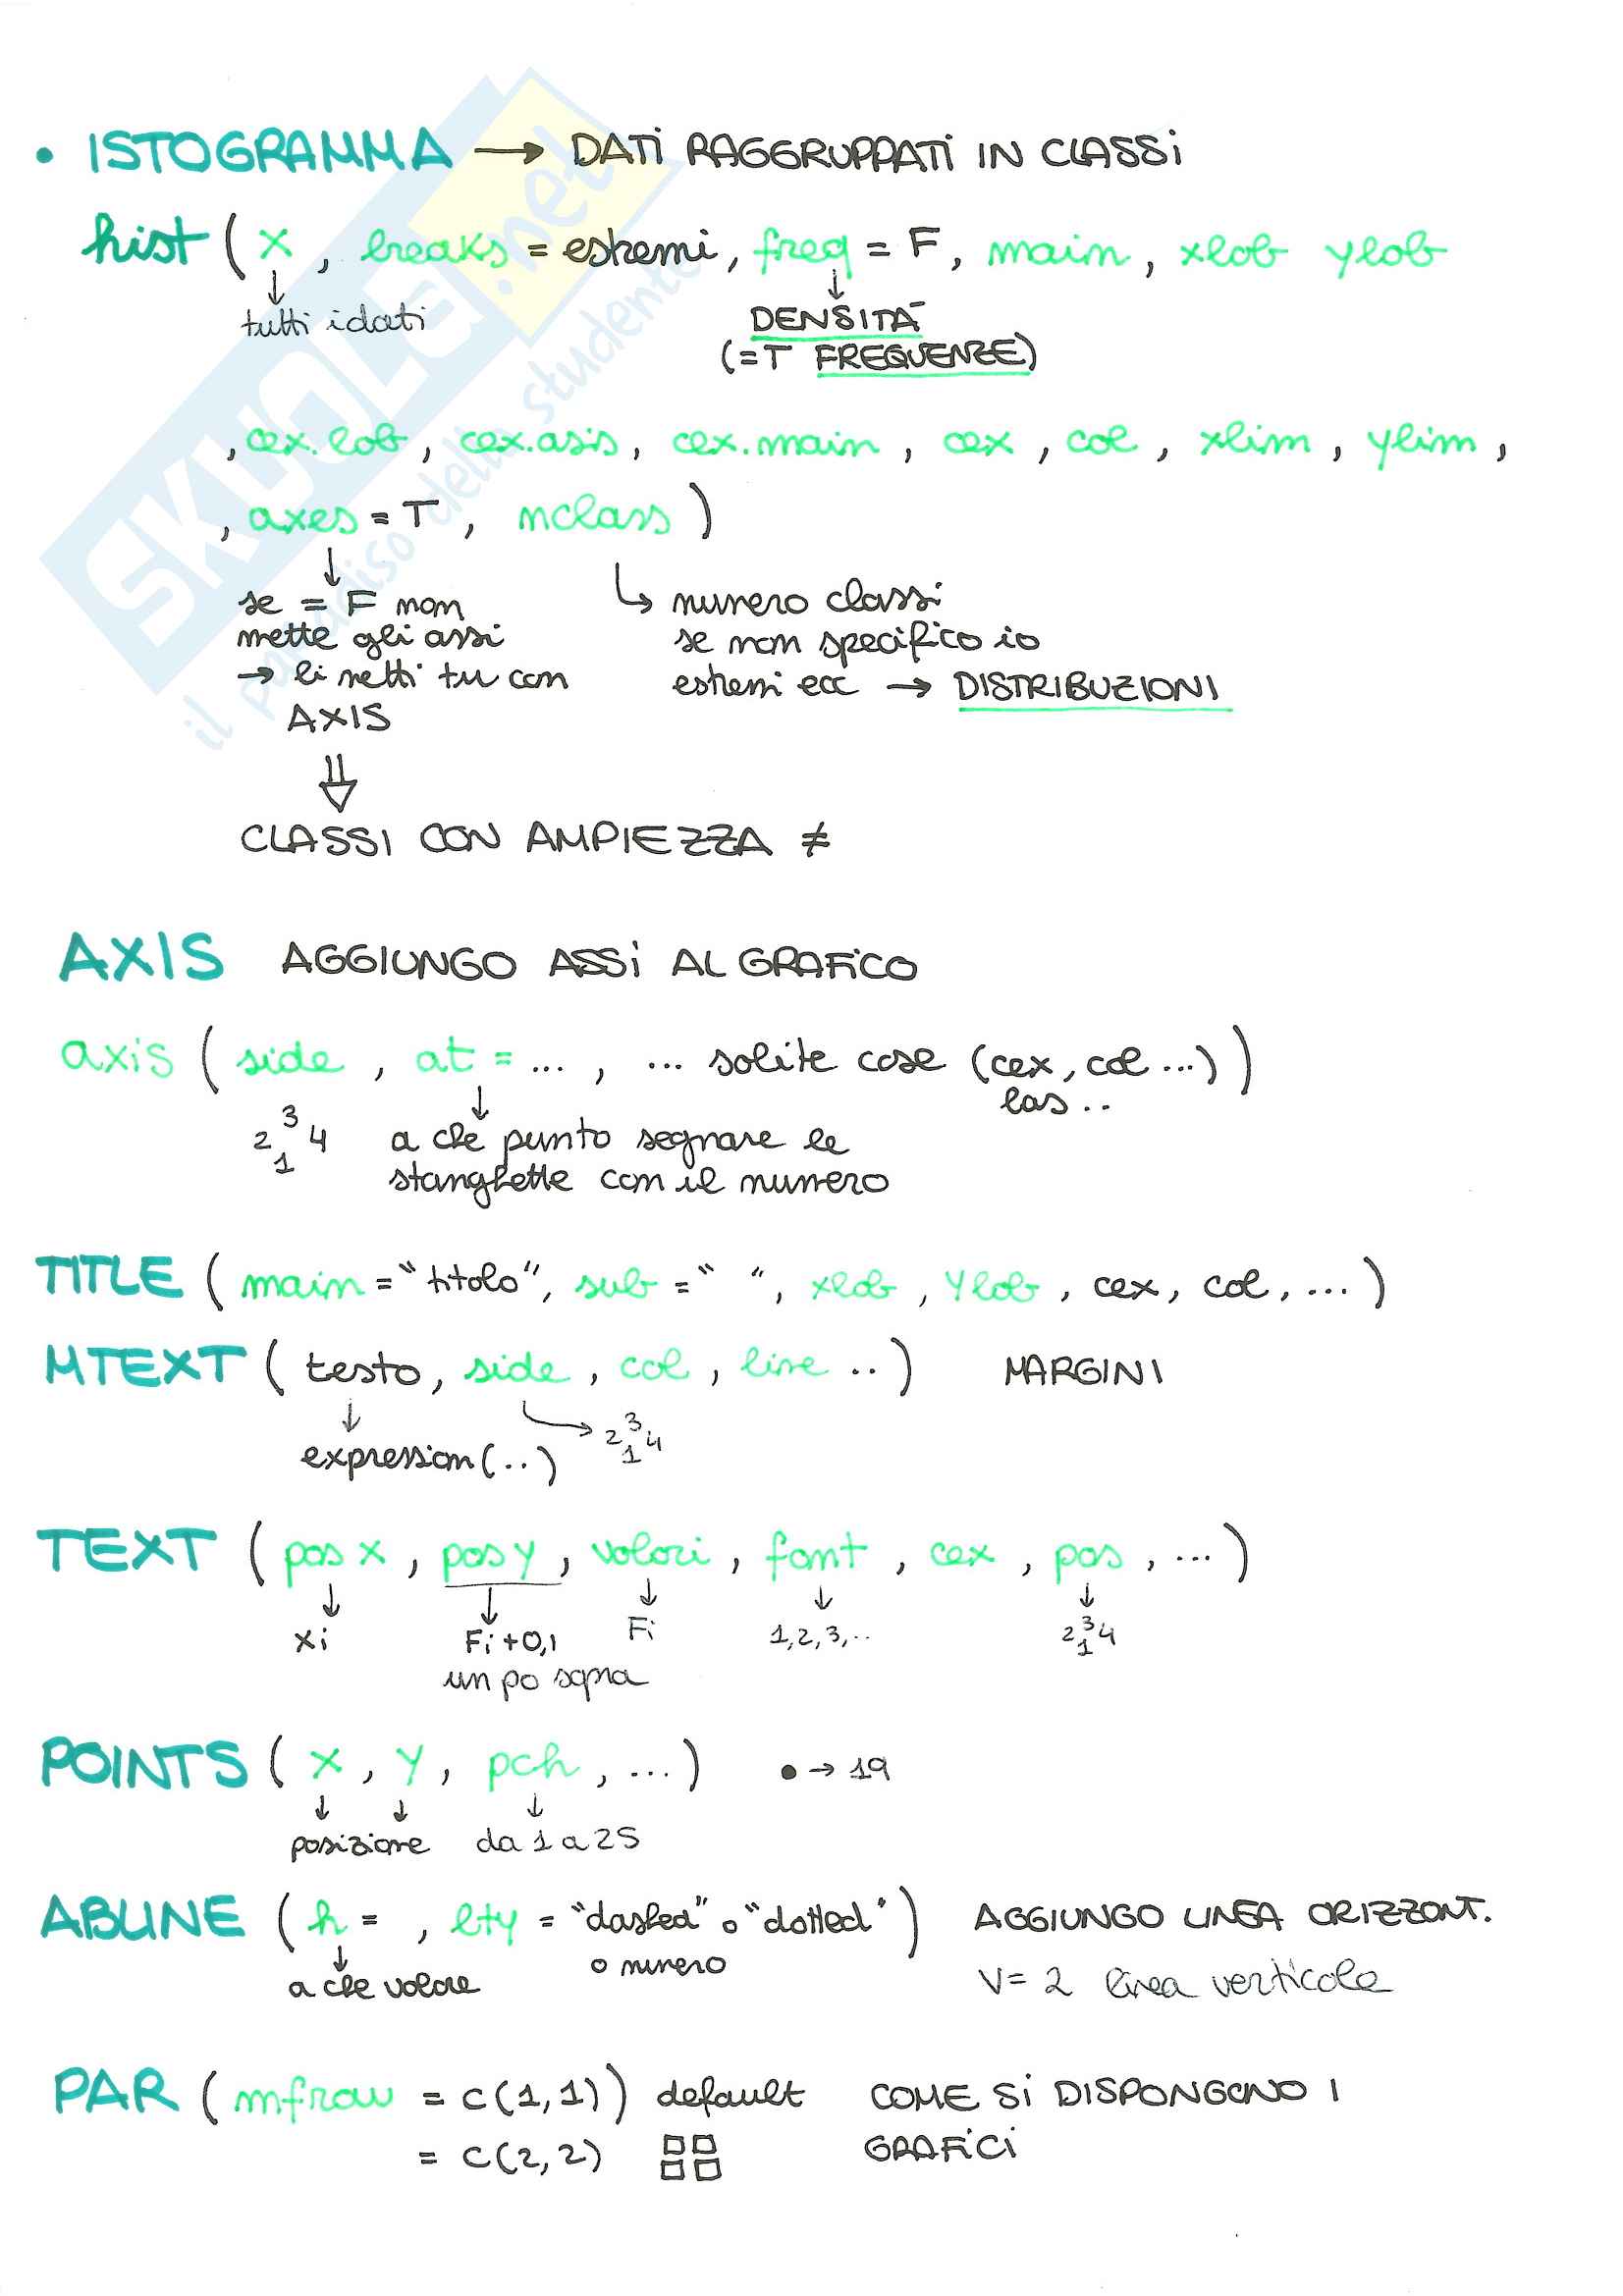 • ISTOGRAMMA → DATI RAGGRUPPATI IN CLASSI
hist ( x , breaks = estremi, freq = F, main, xlab ylab
↓ tutti i dati
↓ DENSITÀ
(=T FREQUENZE)
, cex.lab, cex.axis, cex.main, cex, col, xlim, ylim,
, axes = T , nclass )
se = F non
mette gli assi
→ li metti tu con
AXIS
↳ numero classi
se non specifico io
estremi ecc → DISTRIBUZIONI
⇓
CLASSI CON AMPIEZZA ≠
AXIS AGGIUNGO ASSI AL GRAFICO
axis ( side , at = ... , ... solite cose (cex, col ...) )
las ..
2 3 4
1
a che punto segnare le
stanghette con il numero
TITLE ( main = "titolo", sub = " ", xlab, ylab, cex, col, ... )
MTEXT ( testo, side, col, line .. ) MARGINI
↓ expression(..)
→ 2 3 4
1
TEXT ( pos x , pos y , valori , font , cex , pos , ... )
xi Fi+0,1 Fi 1,2,3,.. 2 3 4
1
un po sopra
POINTS ( x , y , pch , ... ) • → 19
posizione da 1 a 25
ABLINE ( h = , lty = "dashed" o "dotted" ) AGGIUNGO LINEA ORIZZONT.
a che valore o numero V = 2 linea verticale
PAR ( mfrow = c(1,1) ) default COME SI DISPONGONO I
= c(2,2) GRAFICI
SKUOLA.net
il paradiso dello studente